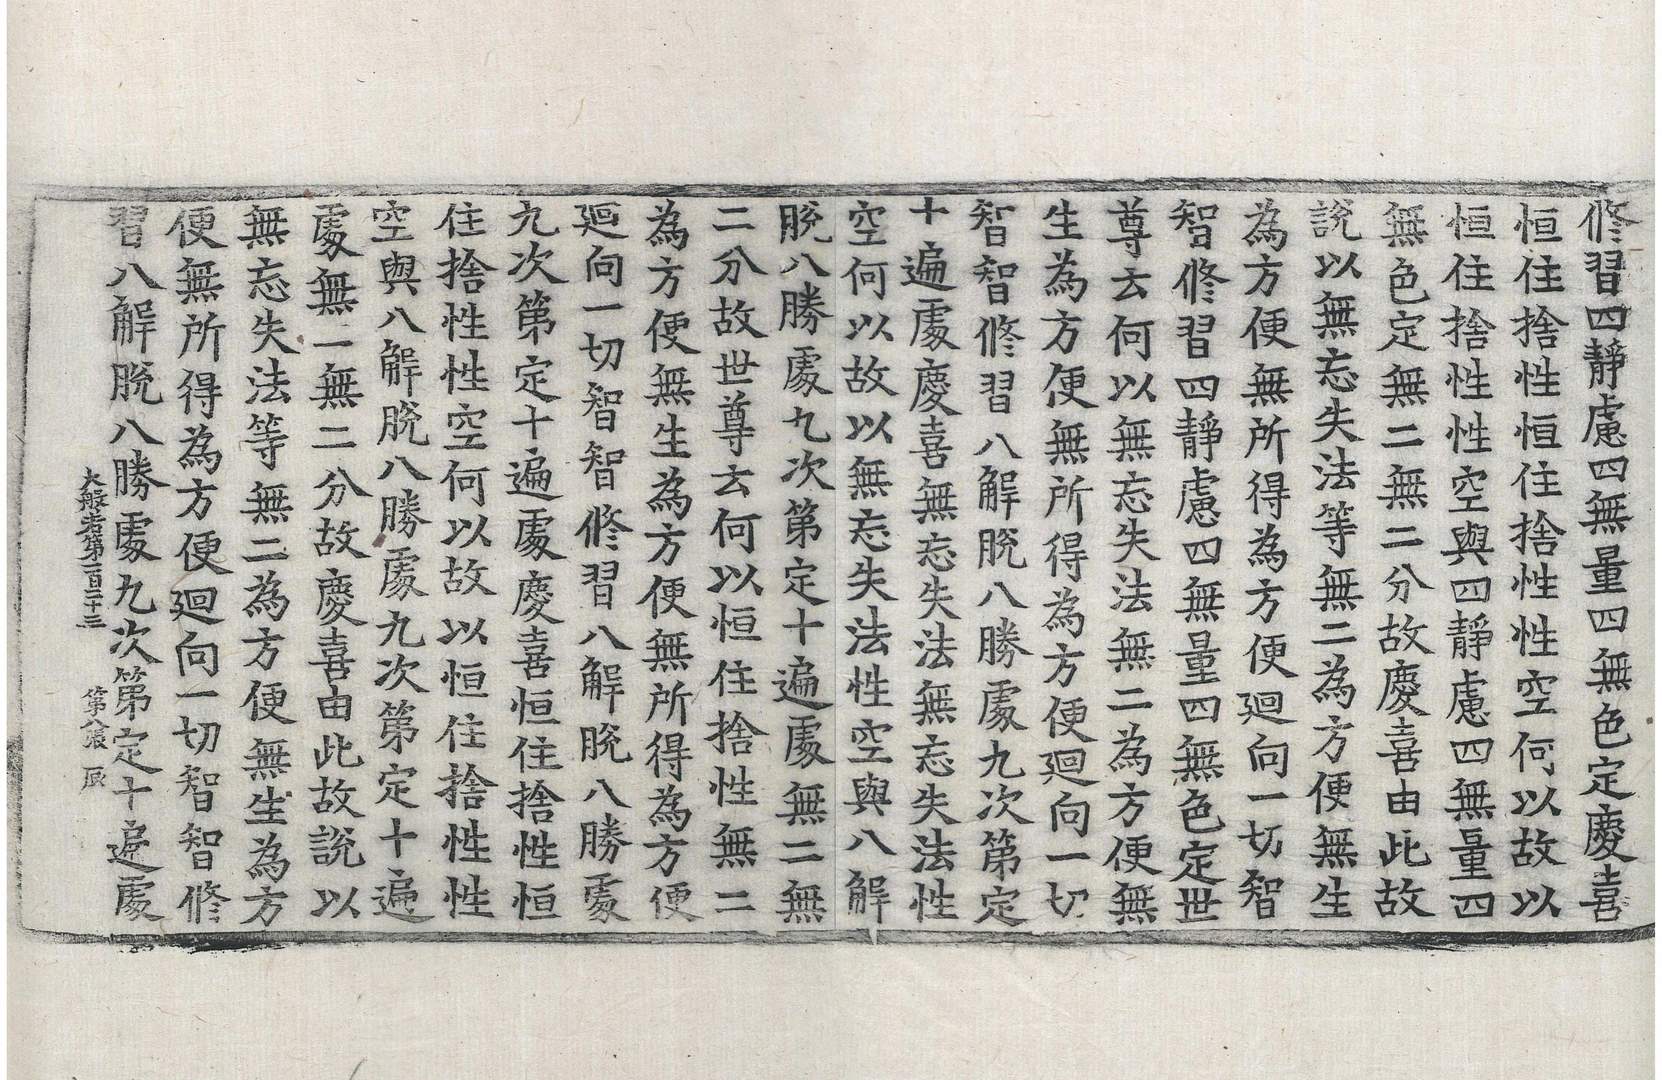 修習四靜慮四無量四無色定慶喜
恒住捨性恒住捨性性空何以故以
恒住捨性性空與四靜慮四無量四
無色定無二無二分故慶喜由此故
說以無忘失法等無二為方便無生
為方便無所得為方便迴向一切智
智修習四靜慮四無量四無色定世
尊云何以無忘失法無二為方便無
生為方便無所得為方便迴向一切
智智修習八解脫八勝處九次第定
十遍處慶喜無忘失法無忘失法性
空何以故以無忘失法性空與八解
脫八勝處九次第定十遍處無二無
二分故世尊云何以恒住捨性無二
為方便無生為方便無所得為方便
迴向一切智智修習八解脫八勝處
九次第定十遍處慶喜恒住捨性恒
住捨性性空何以故以恒住捨性性
空與八解脫八勝處九次第定十遍
處無二無二分故慶喜由此故說以
無忘失法等無二為方便無生為方
便無所得為方便迴向一切智智修
習八解脫八勝處九次第定十遍處
大般若第一百二十三 第八張 辰